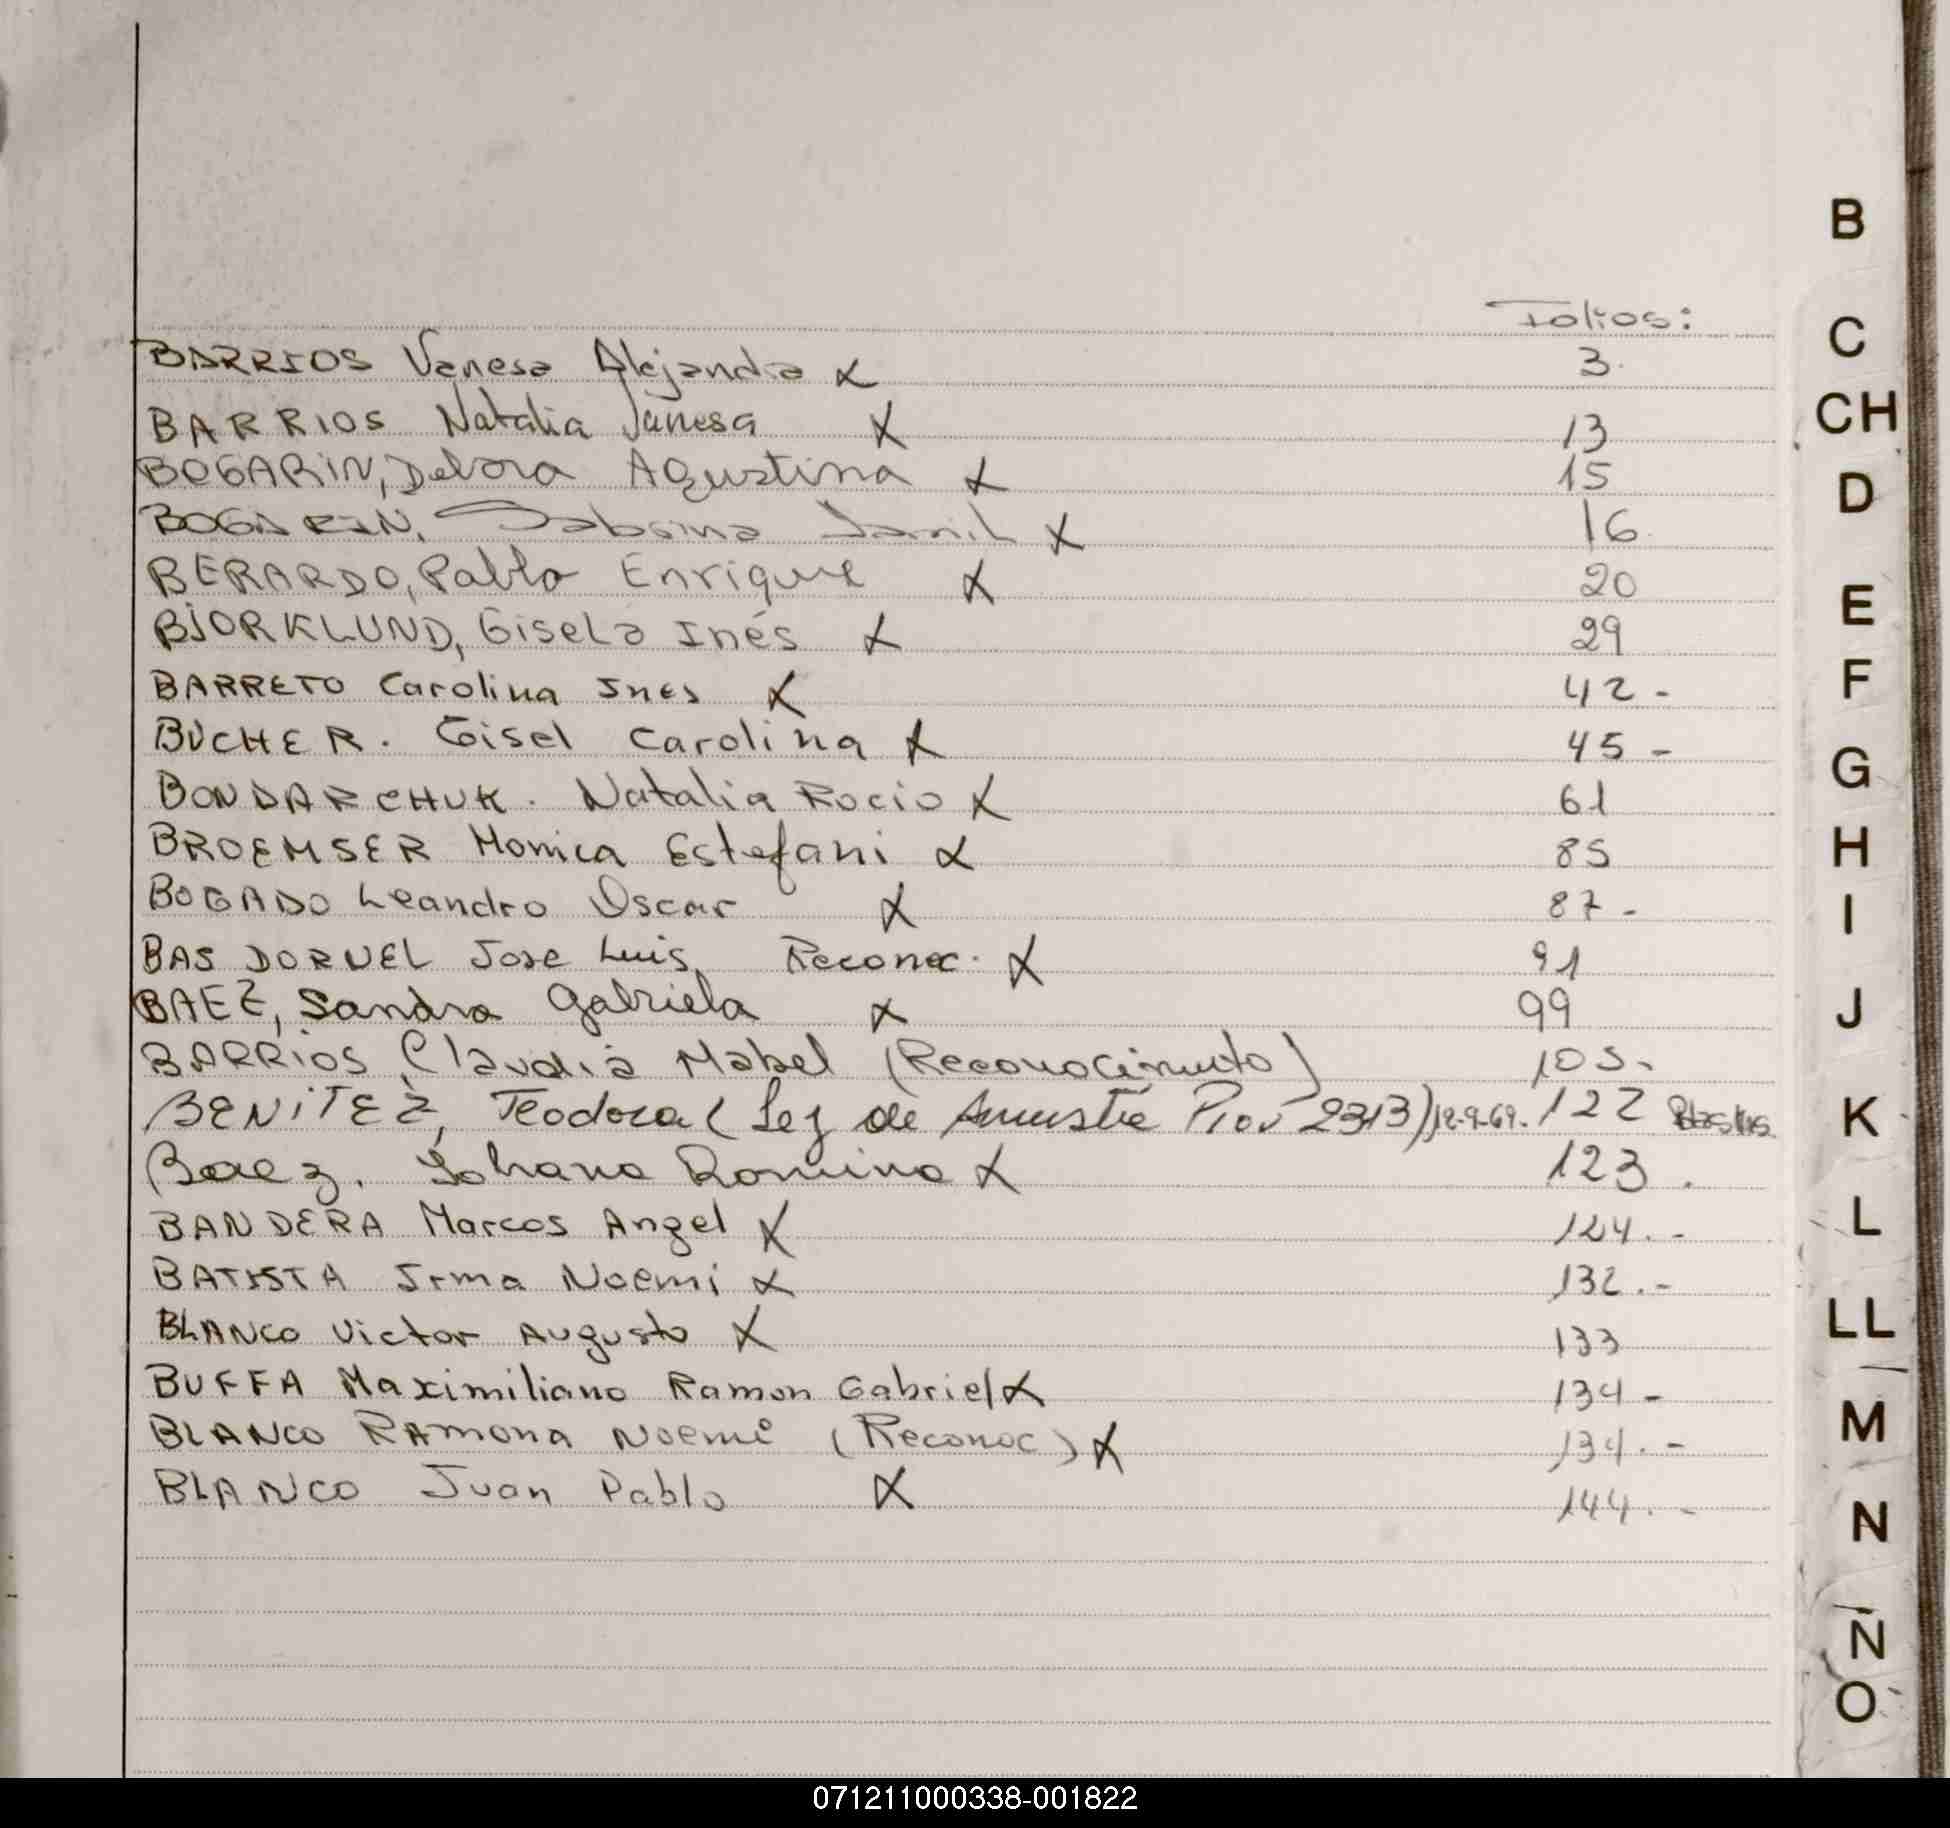 Folios:
BARRIOS Vanesa Alejandra X 3.
BARRIOS Natalia Vanesa X 13
BOGARIN, Debora Agustina X 15
BOGARIN, Sabrina Jamil X 16
BERARDO, Pablo Enrique X 20
BJORKLUND, Gisela Inés X 29
BARRETO Carolina Ines X 42-
BUCHER. Gisel Carolina X 45-
BONDARCHUK. Natalia Rocio X 61
BROEMSER Monica Estefani X 85
BOGADO Leandro Oscar X 87-
BAS DORNEL Jose Luis, Reconoc. X 91
BAEZ, Sandra Gabriela X 99
BARRIOS, Claudia Mabel (Reconocimiento) 105.
BENITEZ, Teodora (Ley de Amnistia Prov 2313) 12-9-69. 122
Baez. Yohana Romina X 123.
BANDERA Marcos Angel X 124.-
BATISTA Irma Noemi X 132.-
BLANCO Victor Augusto X 133
BUFFA Maximiliano Ramon Gabriel X 134-
BLANCO Ramona Noemi (Reconoc) X 134.-
BLANCO Juan Pablo X 144.-
B
C
CH
D
E
F
G
H
I
J
K
L
LL
M
N
Ñ
O
071211000338-001822